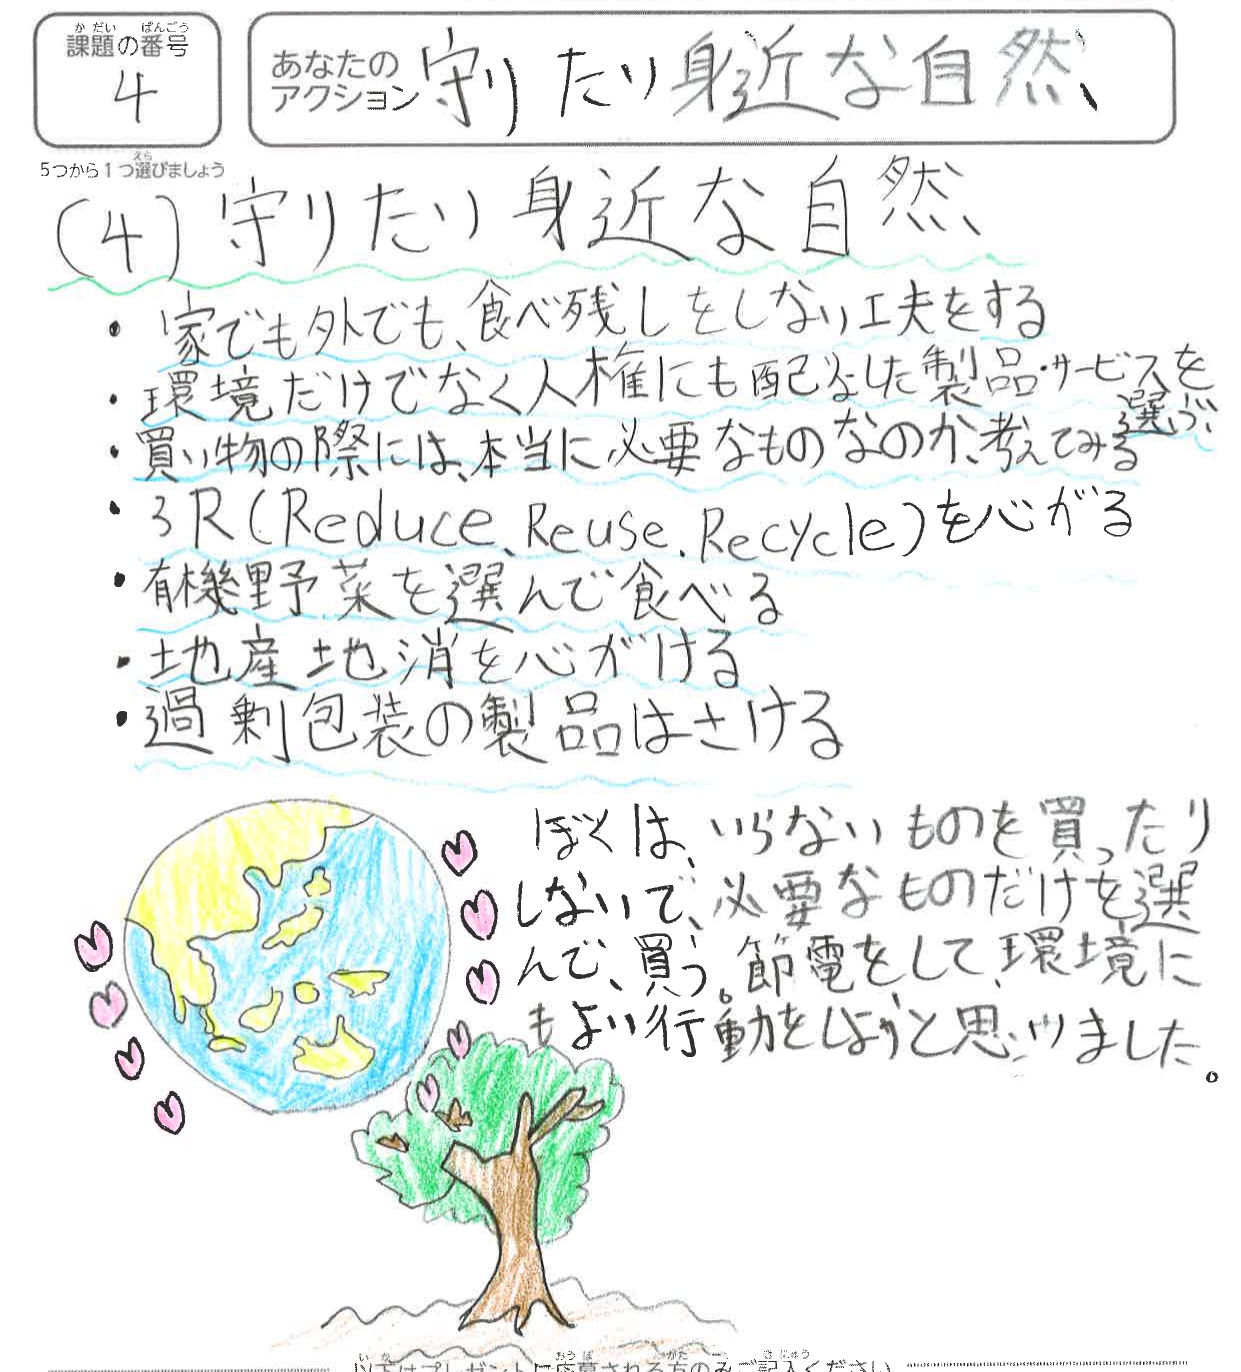 課題の番号
4
あなたの
アクション
守りたい身近な自然、
5つから1つ選びましょう
(4)守りたい身近な自然、
・家でも外でも、食べ残しをしない工夫をする
・環境だけでなく人権にも配慮した製品・サービスを
選ぶ、
・買い物の際には、本当に必要なものなのか、考えてみる
・3R(Reduce、Reuse、Recycle)を心がる
・有機野菜を選んで食べる
・地産地消を心がける
・過剰包装の製品はさける
ぼくは、いらないものを買ったり
しないで、必要なものだけを選
んで、買う。節電をして、環境に
もよい行動をしようと思いました。
以下はプレゼントに応募される方のみご記入ください